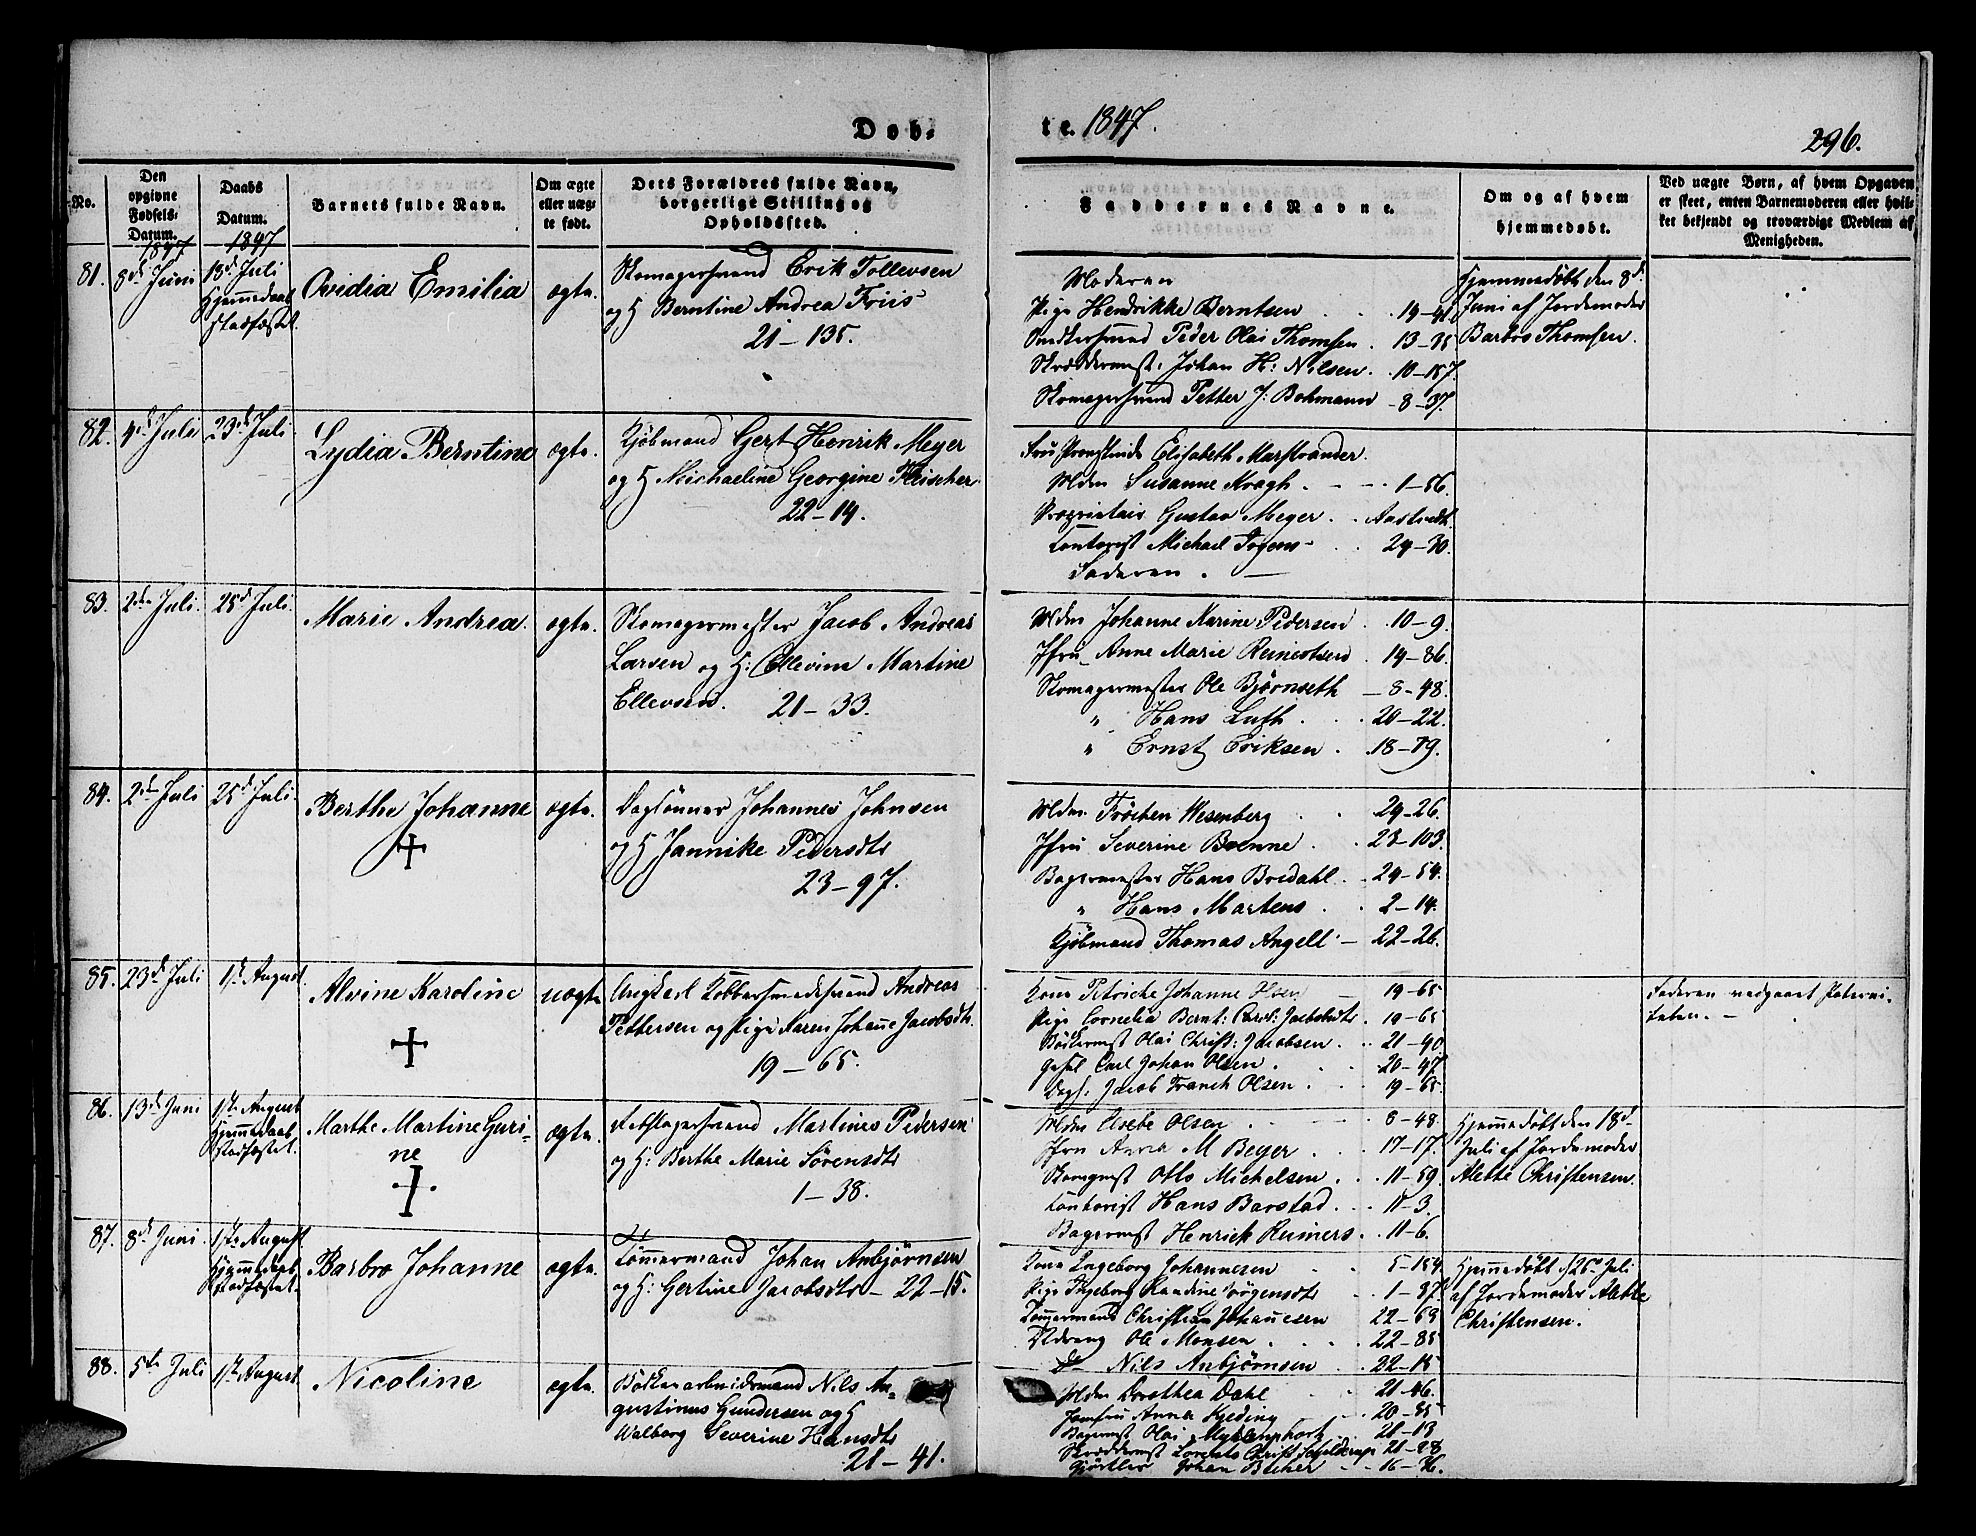 Døb-
te. 1847.
296.
No.
Den opgivne Fødsels-Datum.
Daabs Datum.
Barnets fulde Navn.
Om ægte eller uægte født.
Dets Forældres fulde Navn, borgerlige Stilling og Opholdssted.
Faddernes Navne.
Om og af hvem hjemmedøbt.
Ved uægte Børn, af hvem Opgaven er skeet, enten Barnemoderen eller hvilket bekjendt og troværdigt Medlem af Menigheden.
1847
1847
81. 8de Juni 13de Juli
Hjemmedaab
stadfæstet.
Ovidia Emilia
ægte.
Skomagersvend Erik Tollevsen
og H Berntine Andrea Friis
21–135.
Moderen
Pige Hendrikke Berntsen 14–41.
Snedkersvend Peder Olai Thomsen 13–35
Skræddermst. Johan H: Nilsen 10–157.
Skomagersvend Petter J: Bohmann 8–37.
Hjemmedøbt den 8d
Juni af Jordemoder
Barbro Thomsen.
82. 4de Juli 23de Juli
Lydia Berntine
ægte.
Kjøbmand Gert Henrik Meyer
og H Michaeline Georgine Fleischer
22–14.
Fru Provstinde Elisabeth Marstrander.
Mdm Susanne Kragh 1–56.
Proprietair Gustav Meyer
Contorist Michael 24–30.
Faderen.
83. 2den Juli. 25de Juli.
Marie Andrea.
ægte.
Skomagermester Jacob Andreas
Larsen og H: Ellevine Martine
Ellevsen. 21–33.
Mdm Johanne Marine Pedersen 10–9.
Jfru Anne Marie 14–86.
Skomagermester Ole Bjørnseth 8–48.
" Hans Luth 20–22.
" Ernst Eriksen 18–79.
84. 2den Juli 25de Juli
Berthe Johanne
ægte.
Daglønner Johannes Johnsen
og H Jannike Pedersdtr
23–97.
Mdm. Frøchen Wesenberg 24–26.
Jfru Severine Brenne 23–103.
Bagermester Hans Bredahl 24–54.
" Hans Martens 2–14.
Kjøbmand Thomas Angell 22–26.
85. 23de Juli 1ste August.
Alvine Karoline
uægte
Ungkarl Kobbersmedsvend Andreas
Pettersen og Pige Karen Johanne Jacobsdtr.
19–65.
Kone Petriche Johanne Olsen 19–65
Pige Cornelia Bernt: Carol: Jacobsdtr 19–65
Bødkermst Olai Christ: Jacobsen 21–40
Gesel Carl Johan Olsen 20–47
Dagl. Jacob Franck Olsen 19–65
Faderen vedgaaet Paterni-
teten.
86. 13de Juni 1ste August
Hjemmedaab
stadfæstet.
Marthe Martine Guri-
ne
ægte.
Rebslagersvend Martines Pedersen
og H: Berthe Marie Sørensdtr
1–38.
Mdm Olsen 8–48.
Jfru Anna M Beyer 17–17.
Skomgmst Otto Michelsen 11–59.
Contorist Hans Barstad 11–3.
Bagermst Henrick Reimers 11–6.
Hjemmedøbt den 18d
Juli af Jordemoder
Alette Christensen.
87. 8de Juni 1ste August.
Hjemmedaab
stadfæstet.
Barbro Johanne
ægte.
Tømmermand Johan Anbjørnsen
og H: Gertine Jacobsdtr – 22–15.
Kone Ingeborg Johannesen 5–154
Pige Ingeborg Randine Jørgensdtr 1–87
Tømmermand Christian Johannesen 22–69
Ole Monsen 22–85
do Nils Anbjørnsen 22–15
Hjemmedøbt d 25de Juli
af Jordemoder Alette
Christensen.
88. 5te Juli 1ste August
Nicoline
ægte.
Bødkerarbeidsmand Nils Au-
gustinus Gundersen og H
Walborg Severine Hansdtr
21–41.
Mdm Dorothea Dahl 21–46.
Jomfru Anna Kjeding 20–85
Bagermst Olai 21–13
Skræddermst Lorents Christ Schjelderup 21–28
Gjørtler Johan Bleher 16–36.